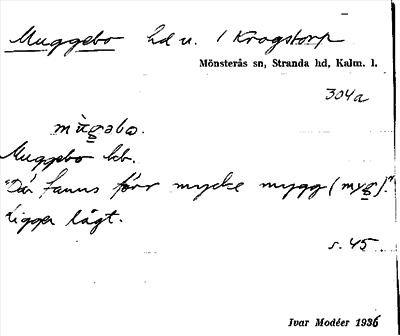 Muggebo hd u. / Krogstorp
Mönsterås sn, Stranda hd, Kalm. l.
304a
mùgəbo.
Muggebo bb.
"Där fanns förr mycke mygg (myg)."
Ligger lågt.
s. 45
Ivar Modéer 1936